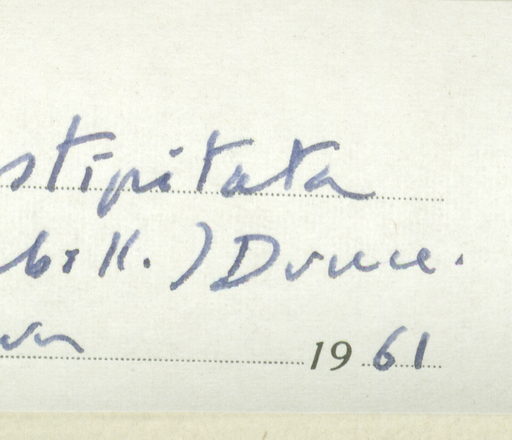 stipitata
bill.) Druce.
1961